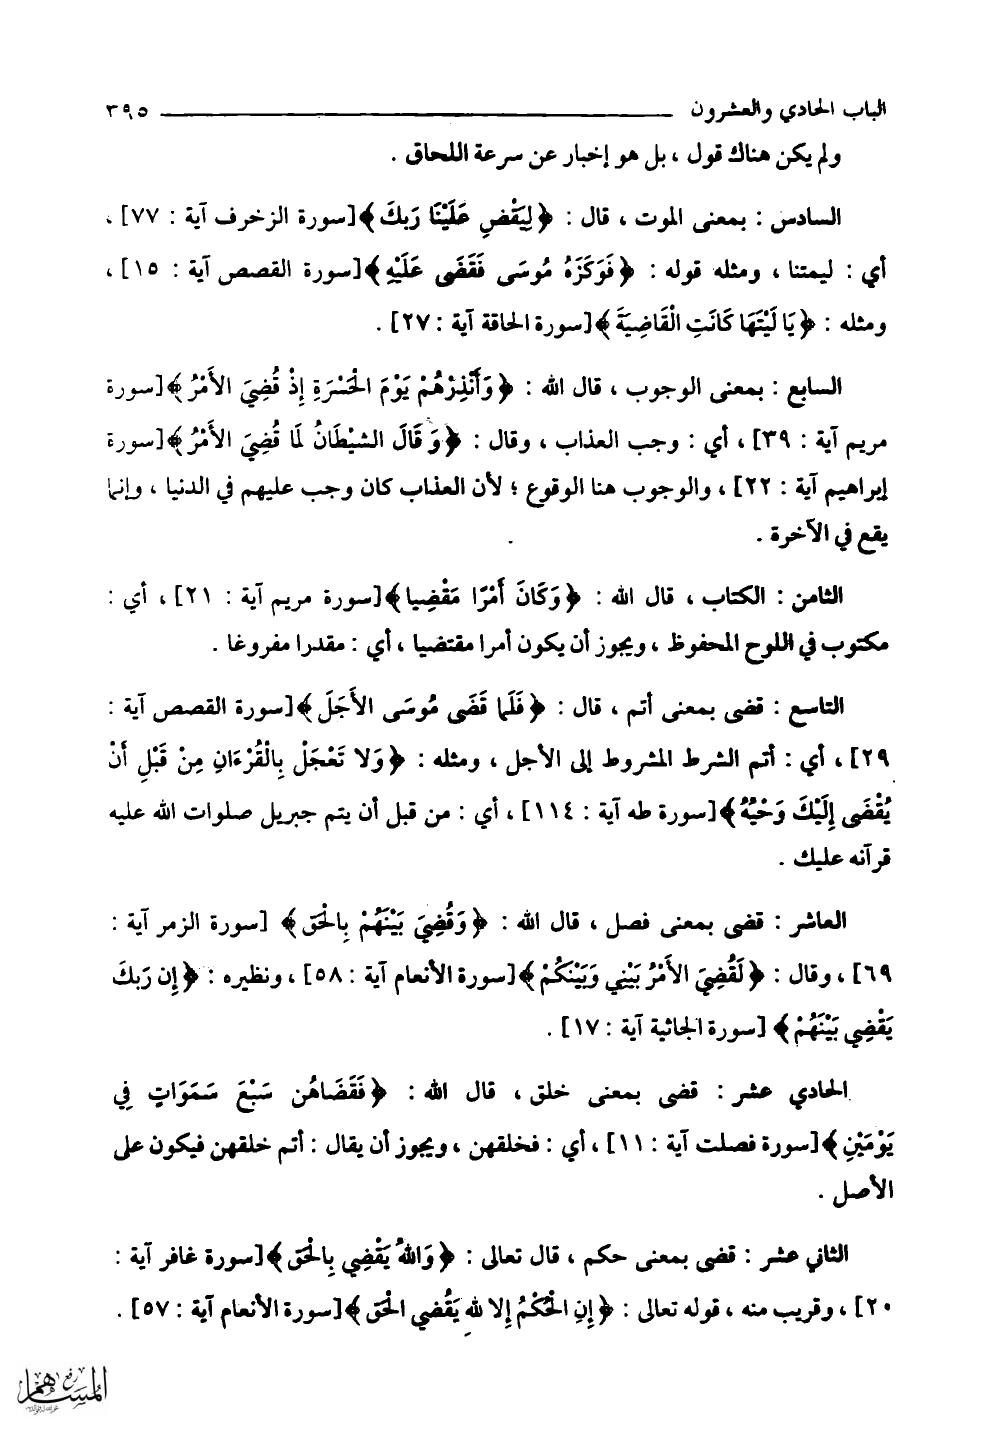 الباب الحادي والعشرون ٣٩٥
ولم يكن هناك قول ، بل هو إخبار عن سرعة اللحاق .
السادس : بمعنى الموت ، قال : ﴿ لِيَقْضِ عَلَيْنَا رَبكَ ﴾[سورة الزخرف آية : ٧٧] ،
أي : ليمتنا ، ومثله قوله : ﴿ فَوَكَزَهُ مُوسَى فَقَضَى عَلَيْهِ ﴾[سورة القصص آية : ١٥] ،
ومثله : ﴿ يَا لَيْتَهَا كَانَتِ الْقَاضِيَةَ ﴾[سورة الحاقة آية : ٢٧] .
السابع : بمعنى الوجوب ، قال الله : ﴿ وَأَنْذِرْهُمْ يَوْمَ الْحَسْرَةِ إِذْ قُضِيَ الأَمْرُ ﴾[سورة
مريم آية : ٣٩] ، أي : وجب العذاب ، وقال : ﴿ وَقَالَ الشيْطَانُ لَمَا قُضِيَ الأَمْرُ ﴾[سورة
إبراهيم آية : ٢٢] ، والوجوب هنا الوقوع ؛ لأن العذاب كان وجب عليهم في الدنيا ، وإنما
يقع في الآخرة .
الثامن : الكتاب ، قال الله : ﴿ وَكَانَ أَمْرًا مَقْضِيا ﴾[سورة مريم آية : ٢١] ، أي :
مكتوب في اللوح المحفوظ ، ويجوز أن يكون أمرا مقتضيا ، أي : مقدرا مفروغا .
التاسع : قضى بمعنى أتم ، قال : ﴿ فَلَما قَضَى مُوسَى الأَجَلَ ﴾[سورة القصص آية :
٢٩] ، أي : أتم الشرط المشروط إلى الأجل ، ومثله : ﴿ وَلا تَعْجَلْ بِالْقُرْءَانِ مِنْ قَبْلِ أَنْ
يُقْضَى إِلَيْكَ وَحْيُهُ ﴾[سورة طه آية : ١١٤] ، أي : من قبل أن يتم جبريل صلوات الله عليه
قرآنه عليك .
العاشر : قضى بمعنى فصل ، قال الله : ﴿ وَقُضِيَ بَيْنَهُمْ بِالْحَق ﴾ [سورة الزمر آية :
٦٩] ، وقال : ﴿ لَقُضِيَ الأَمْرُ بَيْنِي وَبَيْنَكُمْ ﴾[سورة الأنعام آية : ٥٨] ، ونظيره : ﴿ إِن رَبكَ
يَقْضِي بَيْنَهُمْ ﴾ [سورة الجاثية آية : ١٧] .
الحادي عشر : قضى بمعنى خلق ، قال الله : ﴿ فَقَضَاهُن سَبْعَ سَمَوَاتٍ فِي
يَوْمَيْنِ ﴾[سورة فصلت آية : ١١] ، أي : فخلقهن ، ويجوز أن يقال : أتم خلقهن فيكون على
الأصل .
الثاني عشر : قضى بمعنى حكم ، قال تعالى : ﴿ وَاللهُ يَقْضِي بِالْحَق ﴾[سورة غافر آية :
٢٠] ، وقريب منه ، قوله تعالى : ﴿ إِنِ الْحُكْمُ إِلا لِلهِ يَقُضي الْحَق ﴾[سورة الأنعام آية : ٥٧] .
رفع
المساهم